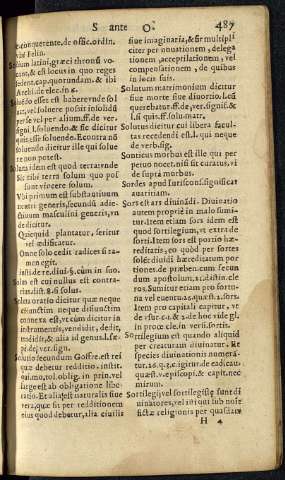 S ante O. 487
conquerente. de offic. ordin.
vbi Felin.
Solium latini, græci thronũ vo-
cant, & est locus in quo reges
sedent. cap. quorundam. & ibi
Archi. de elec. in 6.
Soluẽdo esse est habere vnde sol
uat, vel soluere possit in solidũ
per se vel per alium. ff. de ver-
sig. l. soluendo. & sic dicitur
quis esse soluendo. E contra nõ
soluendo dicitur ille qui solue
re non potest.
Soluta idem est quod terra vnde
Sic tibi terra solum quo pos
sunt vincere solum.
Vbi primum est substantiuum
neutri generis, secundũ adie-
ctiuum masculini generis, vn
de dicitur.
Quicquid plantatur, seritur
vel ædificatur.
Omne solo cedit radices si ta-
men egit.
insti. de re. diui. §. cùm in suo.
Solus est cui nullus est contra-
rius. dist. 8. §. solus.
Soluta oratio dicitur quæ neque
coniunctim neque disiunctim
connexa est, vt cùm dicitur in
instrumentis, vendidit, dedit,
tradidit, & alia id genus. l. sæ-
pe. de ver. sign.
Solutio secundum Goffre. est rei
quæ debetur redditio. instit.
qui. mo. tol. oblig. in prin. vel
large est ab obligatione libe-
ratio. Et alia est naturalis siue
vera, quæ fit per redditionem
eius quod debetur, alia ciuilis
siue imaginaria, & fit multipli
citer per nouationem, delega
tionem, acceptilationem, vel
compensationem, de quibus
in locis suis.
Solutum matrimonium dicitur
siue morte siue diuortio. l. si
quærebatur. ff. de. ver. signi. &
l. si quis. ff. solu. matr.
Solutus dicitur cui libera facul-
tas recedendi est. l. qui neque
de verb. sig.
Sonticus morbus est ille qui per
petuo nocet. nisi sit curatus, vt
de supra morbus.
Sordes apud Iuriscons. significat
auaritiam.
Sors est ars diuinãdi. Diuinatio
autem propriè in malo sumi-
tur. Item etiam sors idem est
quod sortilegium, vt extra de
sorti. Item sors est portio hæ-
reditatis, eo quòd per sortes
soleãt diuidi hæreditatum por
tiones. de præben. cum secun
dum apostolum. 21. distin. cle
ros. Sumitur etiam pro fortu-
na vel euentu. 25. quæst. 2. sors.
Item pro capitali capitur, vt
de vsur. c. 1. & 2. de hoc vide gl.
in proœ. cle. in vers. sortis.
Sortilegium est quando aliquid
per creaturam diuinatur. Et
species diuinationis nomerã-
tur. 26. q. 2. c. igitur. de ea dicau.
quæst. v. episcopi. & capit. nec
mirum.
Sortilegi, vel sortilegisq sunt di
uinatores, vel isti qui sub nose
fictæ religionis per quasdam
H 4